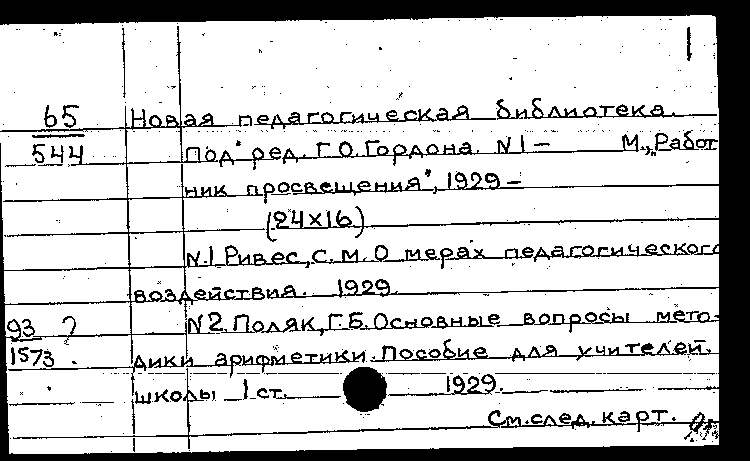 1
65 Новая педагогическая библиотека.
544 Под ред. Г.О.Гордона. N1 — М., „Работ
ник просвещения", 1929 —
(24х16)
N.1 Ривес, С.М. О мерах педагогического
воздействия. 1929.
93 ? N2. Поляк, Г.Б. Основные вопросы мето-
1573. дики арифметики. Пособие для учителей
школы 1 ст. 1929.
См. след. карт.